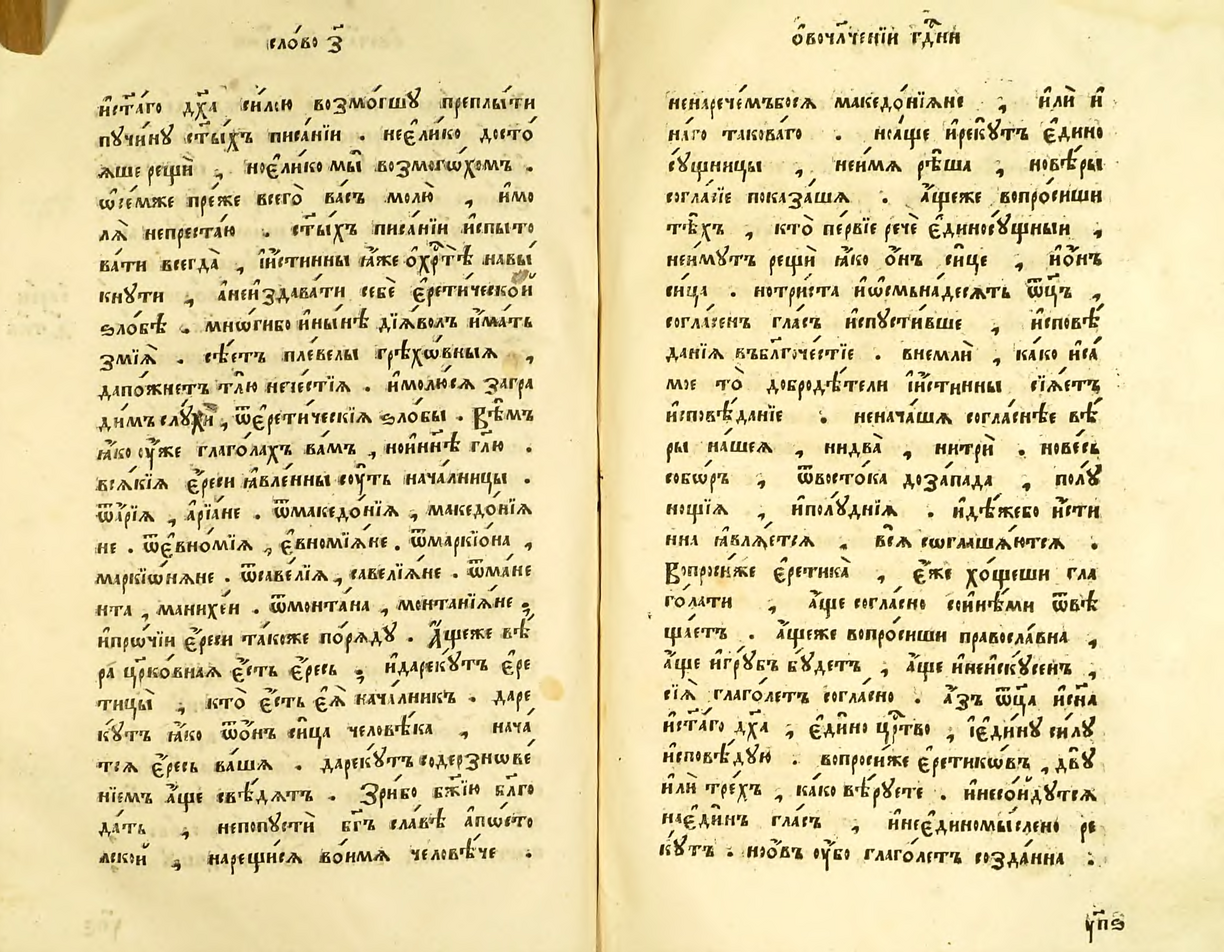 сло́во з҃
и҆ст҃а́го дх҃а си́лою возмо́гшу преплы́ти
пучи́ну ст҃ы́хъ писа́нїи . неє҆ли́ко досто́
ѧше рещѝ , ноє҆ли́ко мы̀ возмого́хомъ .
ѡ҆се́мже пре́же всего̀ ва́съ молю̀ , и҆мо
лѧ̀ непреста́ю . ст҃ы́хъ писа́нїи и҆спыто
ва́ти всегда̀ , і҆и҆́стинны ꙗ҆́же ѻ҆хрт҇ѣ̀ навы́
кнути , а҆неи҆здава́ти себѐ є҆рети́ческой
ѕло́бѣ . мно́гибо и҆ны́нѣ дїѧ́волъ и҆́мать
змїѧ̀ . сѣ́етъ пле́велы грѣхо́вныѧ ,
дапо́жнетъ тлю̀ нече́стїѧ . и҆молю́сѧ загра
ди́мъ слу́хи , ѿє҆рети́ческїѧ ѕло́бы . Вѣ́мъ
ꙗ҆́ко ᲂу҆́же глаго́лахъ ва́мъ , нои҆ни́нѣ гл҃ю .
всѧ́кїѧ є҆́реси ꙗ҆вле́нны сꙋ́ть нача́лницы .
ѿа҆́рїѧ , а҆рїа́не . ѿмакедо́нїѧ , македо́нїѧ
не . ѿє҆вно́мїѧ , є҆вномїѧ́не . ѿмаркїо́на ,
маркїѡ́нѧне . ѿсаве́лїѧ , саве́лїѧне . ѿмане
нта , манихе́и . ѿмонта́на , монта́нїѧне ,
и҆про́чїи є҆́реси та́коже по́рѧду . А҆́щеже вѣ́
ра црк҃о́внаѧ є҆́сть є҆́ресь , и҆дареку́тъ є҆ре
тицы̀ , кто̀ є҆́сть є҆ѧ̀ нача́лникъ . даре
ку́тъ ꙗ҆́ко ѿѻ҆́нъ си́ца человѣ́ка , нача́
тсѧ є҆́ресь ва́ша . дареку́тъ содерзнове́
нїемъ а҆́ще свѣ́дѧтъ . Зри́бо бж҃їю бл҃го
да́ть , непопустѝ бг҃ъ сла́вѣ а҆по́сто
лской , нарещи́сѧ во́имѧ человѣ́че .
ѻ҆воч҃лче́нїи гд҇ни
ненарече́мъбосѧ македо́нїѧне , и҆лѝ и҆
на́го такова́го . иа҆́ще и҆реку́тъ є҆дино
су́щницы , неи́мѧ рѣ́ша , новѣ́ры
согла́сїе показа́ша . а҆́щеже вопро́сиши
тѣ́хъ , кто̀ пе́рвїе речѐ є҆диносу́щныи ,
неи́мутъ рещѝ ꙗ҆́ко ѻ҆́нъ си́це , и҆ѻ҆́нъ
си́ца . нотри́ста и҆ѻ҆смьна́десѧть ѻ҆тц҃ъ ,
согла́сенъ гла́съ и҆спусти́вше , и҆сповѣ́
данїѧ въбл҃гоче́стїе . внемлѝ , ка́ко и҆са́
мое то̀ добродѣ́тели і҆и҆́стинны сїѧ́етъ
и҆сповѣ́данїе . неначаша согла́снѣе вѣ́
ры на́шеѧ , нидва̀ , нитрѝ . нове́сь
собо́ръ , ѿвосто́ка доза́пада , полу́
но́щїѧ , и҆полу́днїѧ . и҆дѣ́жебо и҆́сти
нна ꙗ҆влѧ́етсѧ , всѧ̀ соглаша́ютсѧ .
Вопроси́же є҆ретика̀ , є҆́же хо́щеши гла
го́лати , а҆́ще согла́сно сои́нѣми ѿвѣ́
ща́етъ . а҆́щеже вопро́сиши правосла́вна ,
а҆́ще и҆гру́бъ бу́детъ , а҆́ще и҆неи҆ску́сенъ ,
сїѧ̀ глаго́летъ согла́сно . а҆́зъ ѻ҆тц҃а и҆сн҃а
и҆ст҃а́го дх҃а , є҆ди́но црт҇во , і҆є҆ди́ну си́лу
и҆сповѣ́дую . вопроси́же є҆ретико́въ , дву̀
и҆лѝ тре́хъ , ка́ко вѣ́руете . и҆несои́дутсѧ
нає҆ди́нъ гла́съ , и҆неє҆диномы́слено ре
ку́тъ . ноо́въ ᲂу҆́бо глаго́летъ созда́нна :
у҃пѕ